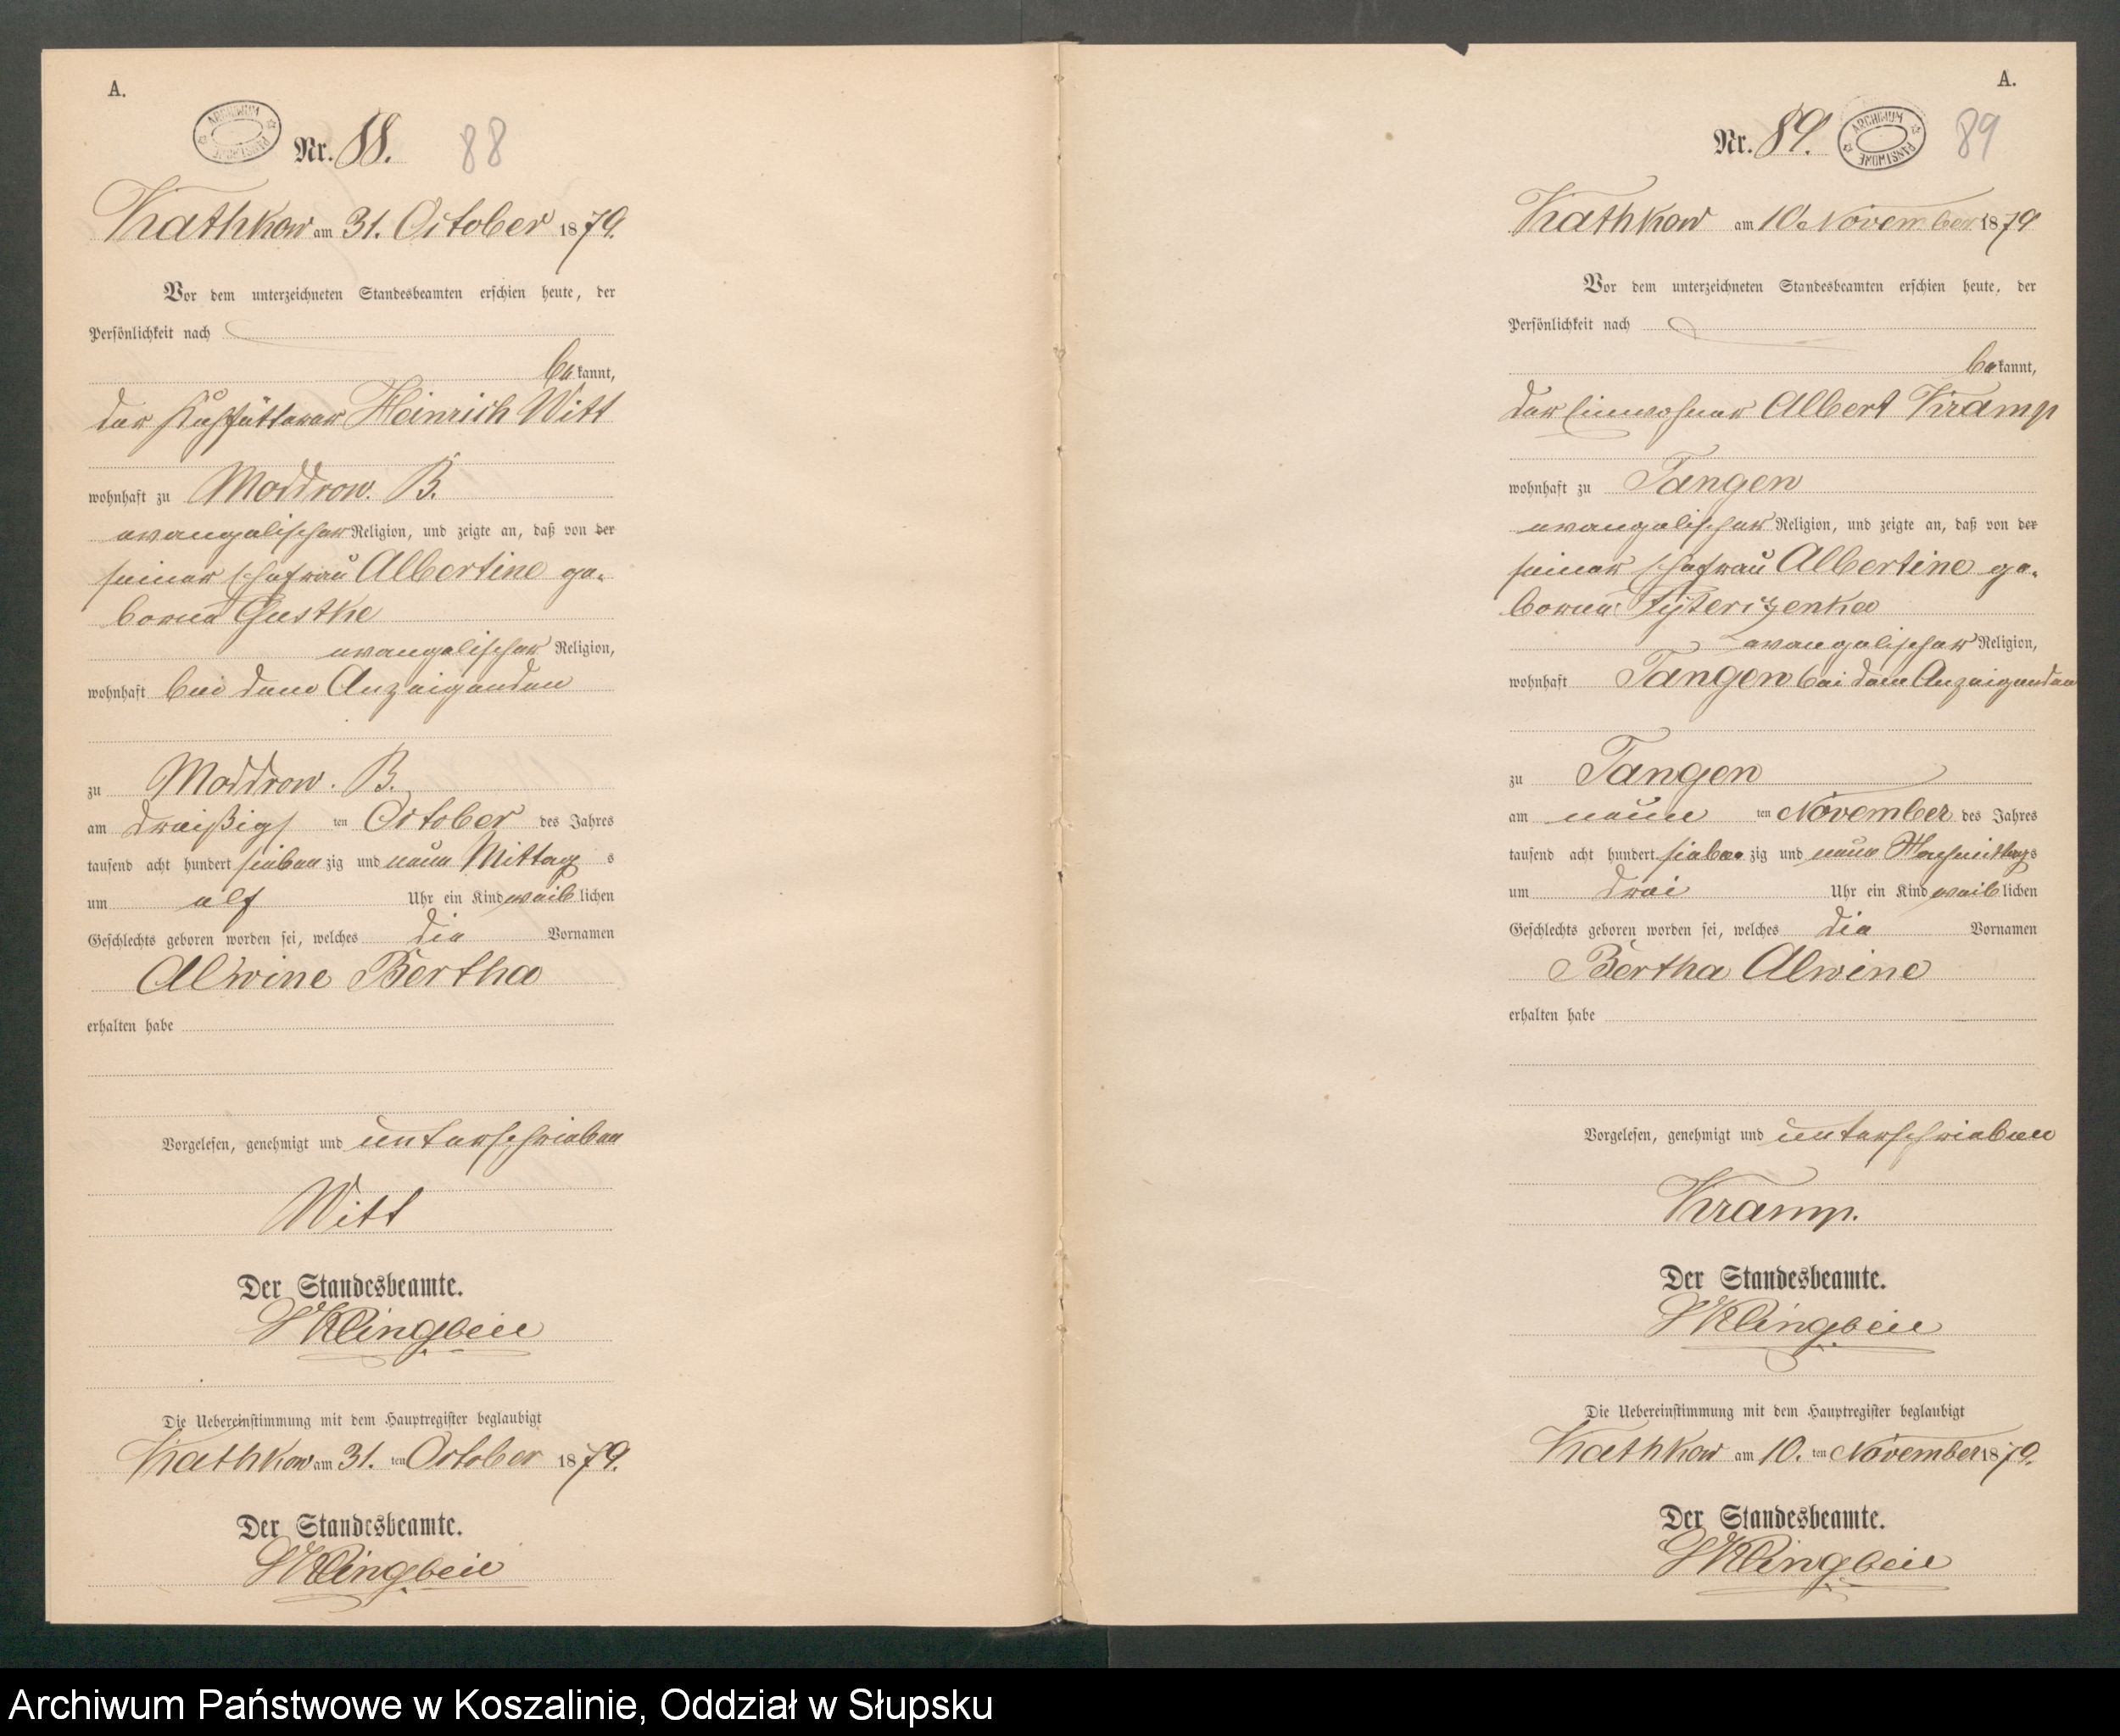 A.
ARCHIWUM PAŃSTWOWE
Nr. 88. 88
Kathkow am 31. October 1879.
Vor dem unterzeichneten Standesbeamten erschien heute, der
Persönlichkeit nach
bekannt,
der Kuhfütterer Heinrich Witt
wohnhaft zu Moddrow. B.
evangelischer Religion, und zeigte an, daß von der
seiner Ehefrau Albertine ge-
borne Gustke
evangelischer Religion,
wohnhaft bei dem Anzeigenden
zu Moddrow. B.
am dreißigs ten October des Jahres
tausend acht hundert sieben zig und neun Mittag s
um elf Uhr ein Kind weib lichen
Geschlechts geboren worden sei, welches die Vornamen
Alwine Bertha
erhalten habe
Vorgelesen, genehmigt und unterschrieben
Witt
Der Standesbeamte.
Klingbeil
Die Uebereinstimmung mit dem Hauptregister beglaubigt
Kathkow am 31. ten October 1879.
Der Standesbeamte.
Klingbeil
A.
Nr. 89. ARCHIWUM PAŃSTWOWE 89
Kathkow am 10. November 1879
Vor dem unterzeichneten Standesbeamten erschien heute, der
Persönlichkeit nach
bekannt,
der Einwohner Albert Kramp
wohnhaft zu Tangen
evangelischer Religion, und zeigte an, daß von der
seiner Ehefrau Albertine ge-
borne
evangelischer Religion,
wohnhaft Tangen bei dem Anzeigenden
zu Tangen
am neun ten November des Jahres
tausend acht hundert sieben zig und neun Nachmittags
um drei Uhr ein Kind weib lichen
Geschlechts geboren worden sei, welches die Vornamen
Bertha Alwine
erhalten habe
Vorgelesen, genehmigt und unterschrieben
Kramp.
Der Standesbeamte.
Klingbeil
Die Uebereinstimmung mit dem Hauptregister beglaubigt
Kathkow am 10. ten November 1879.
Der Standesbeamte.
Klingbeil
Archiwum Państwowe w Koszalinie, Oddział w Słupsku